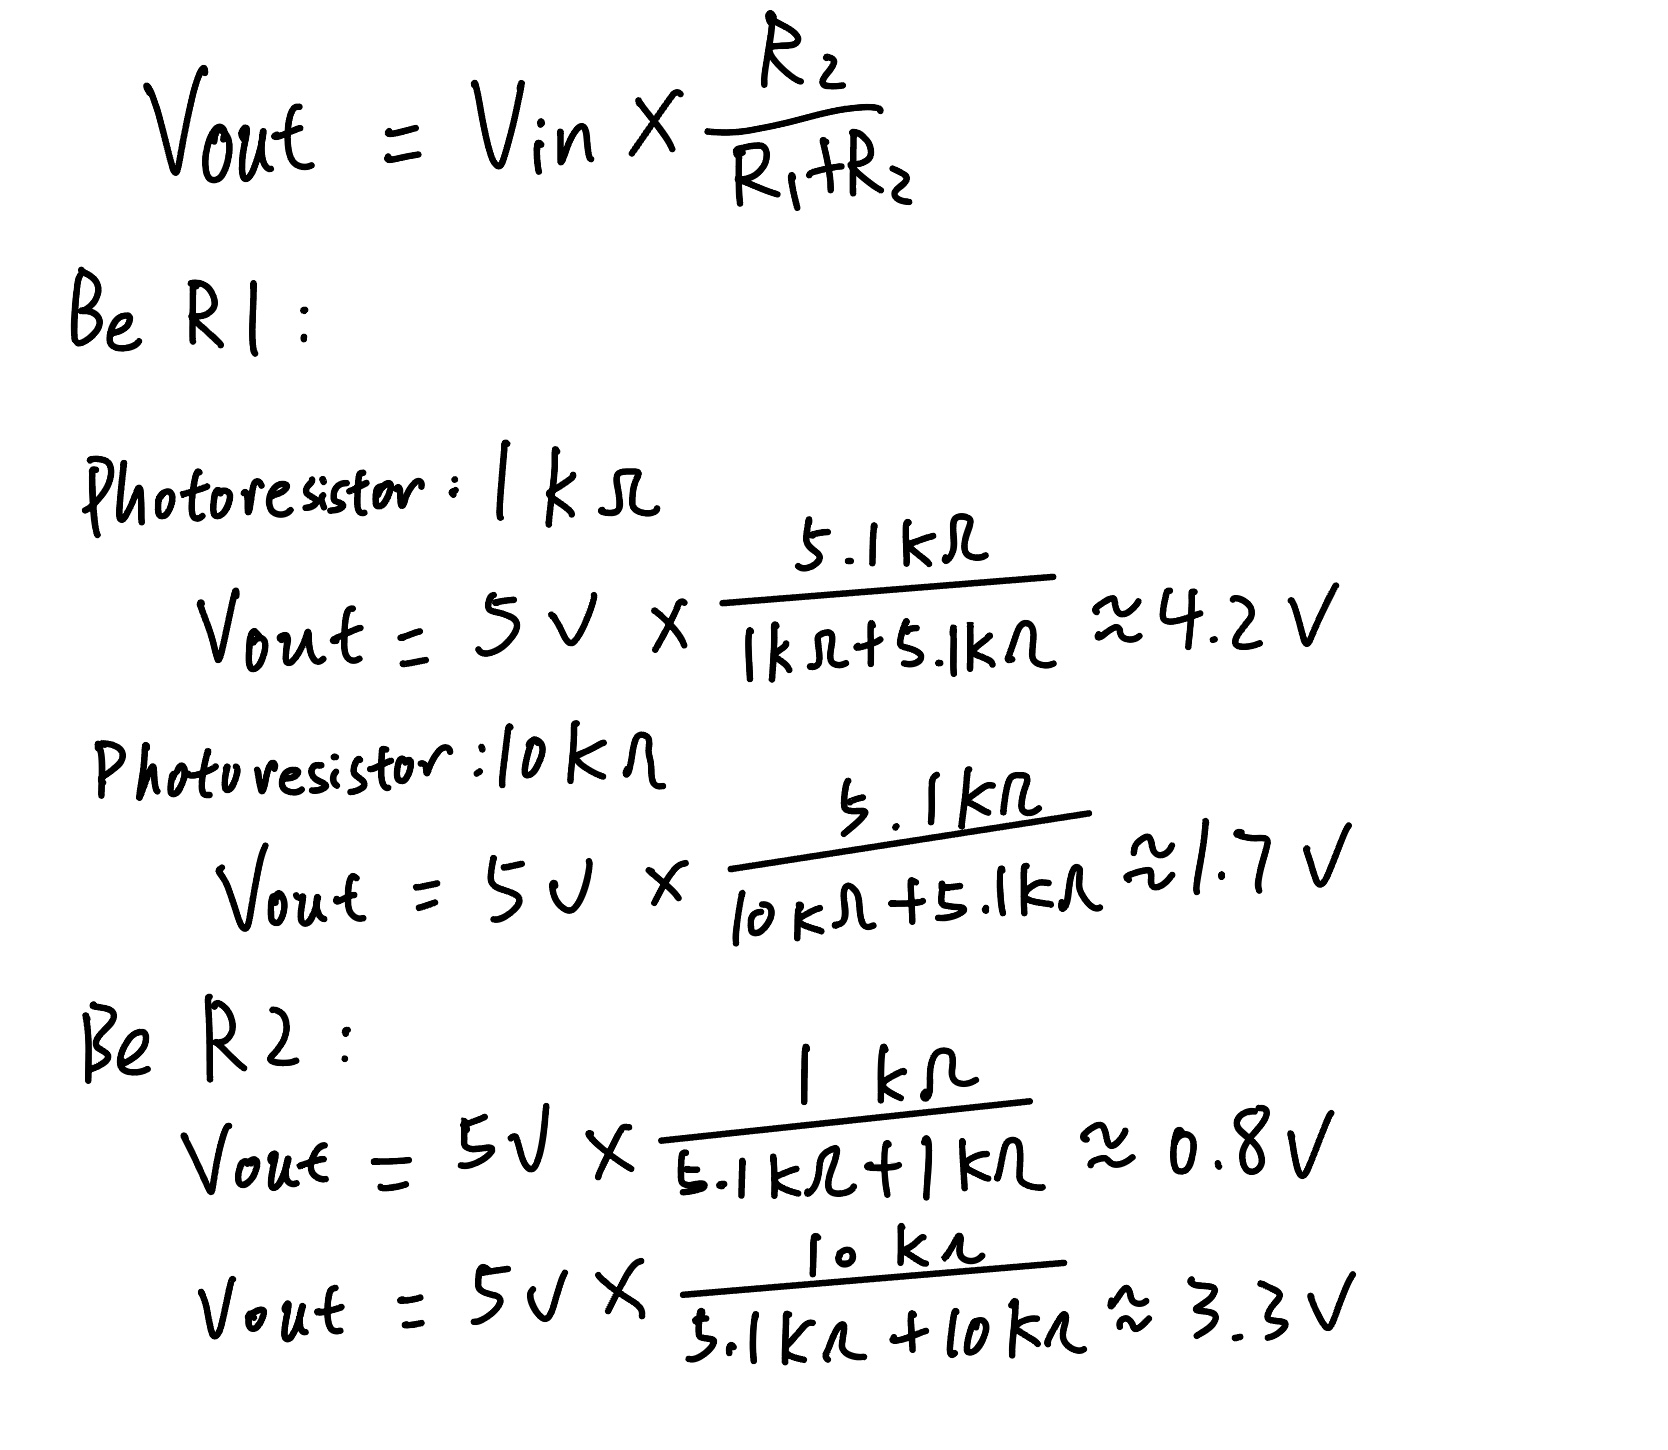 Vout = Vin × R2/(R1+R2)
Be R1:
Photoresistor: 1 kΩ
Vout = 5V × 5.1kΩ/(1kΩ+5.1kΩ) ≈ 4.2 V
Photoresistor: 10 kΩ
Vout = 5V × 5.1kΩ/(10kΩ+5.1kΩ) ≈ 1.7 V
Be R2:
Vout = 5V × 1 kΩ/(5.1kΩ+1kΩ) ≈ 0.8V
Vout = 5V × 10 kΩ/(5.1kΩ+10kΩ) ≈ 3.3V